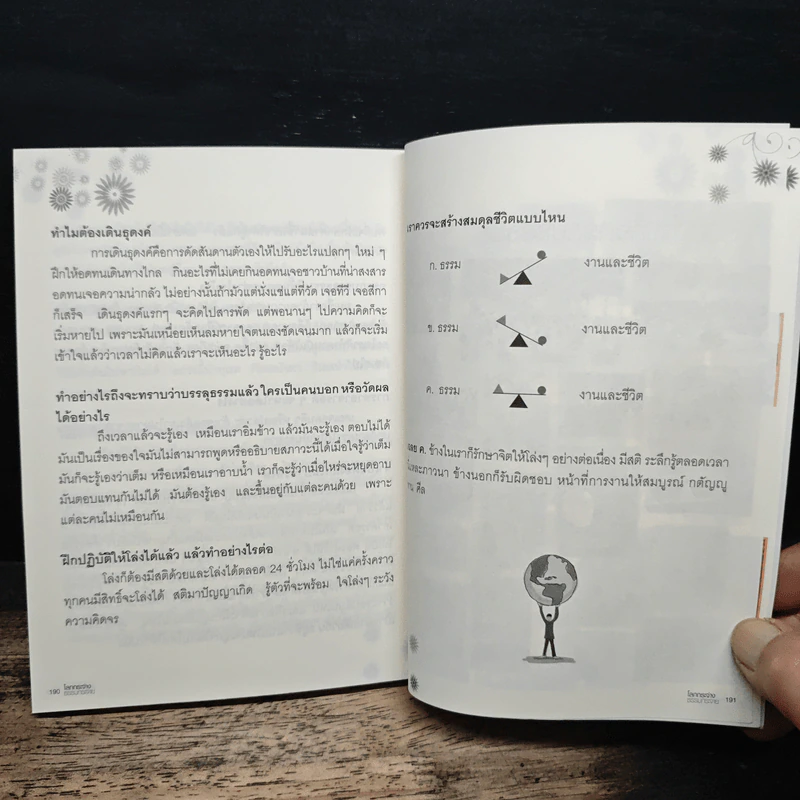 ทำไมต้องเดินธุดงค์
การเดินธุดงค์คือการดัดสันดานตัวเองให้ไปรับอะไรแปลกๆ ใหม่ ๆ
ฝึกให้อดทนเดินทางไกล กินอะไรที่ไม่เคยกินอดทนเจอชาวบ้านที่น่าสงสาร
อดทนเจอความน่ากลัว ไม่อย่างนั้นถ้ามัวแต่นั่งแช่แต่ที่วัด เจอทีวี เจอสีกา
ก็เสร็จ เดินธุดงค์แรกๆ จะคิดไปสารพัด แต่พอนานๆ ไปความคิดก็จะ
เริ่มหายไป เพราะมันเหนื่อยเห็นลมหายใจตนเองชัดเจนมาก แล้วก็จะเริ่ม
เข้าใจแล้วว่าเวลาไม่คิดแล้วเราจะเห็นอะไร รู้อะไร
ทำอย่างไรถึงจะทราบว่าบรรลุธรรมแล้ว ใครเป็นคนบอก หรือวัดผล
ได้อย่างไร
ถึงเวลาแล้วจะรู้เอง เหมือนเราอิ่มข้าว แล้วมันจะรู้เอง ตอบไม่ได้
มันเป็นเรื่องของใจมันไม่สามารถพูดหรืออธิบายสภาวะนี้ได้เมื่อใจรู้ว่าเต็ม
มันก็จะรู้เองว่าเต็ม หรือเหมือนเราอาบน้ำ เราก็จะรู้ว่าเมื่อไหร่จะหยุดอาบ
มันตอบแทนกันไม่ได้ มันต้องรู้เอง และขึ้นอยู่กับแต่ละคนด้วย เพราะ
แต่ละคนไม่เหมือนกัน
ฝึกปฏิบัติให้โล่งได้แล้ว แล้วทำอย่างไรต่อ
โล่งก็ต้องมีสติด้วยและโล่งได้ตลอด 24 ชั่วโมง ไม่ใช่แค่ครั้งคราว
ทุกคนมีสิทธิ์จะโล่งได้ สติมาปัญญาเกิด รู้ตัวที่จะพร้อม ใจโล่งๆ ระวัง
ความคิดจร
190 โลกกระจ่าง
ธรรมกระจาย
เราควรจะสร้างสมดุลชีวิตแบบไหน
ก. ธรรม งานและชีวิต
ข. ธรรม งานและชีวิต
ค. ธรรม งานและชีวิต
ค. ข้างในเราก็รักษาจิตให้โล่งๆ อย่างต่อเนื่อง มีสติ ระลึกรู้ตลอดเวลา
และภาวนา ข้างนอกก็รับผิดชอบ หน้าที่การงานให้สมบูรณ์ กตัญญู
ศีล
โลกกระจ่าง
ธรรมกระจาย 191